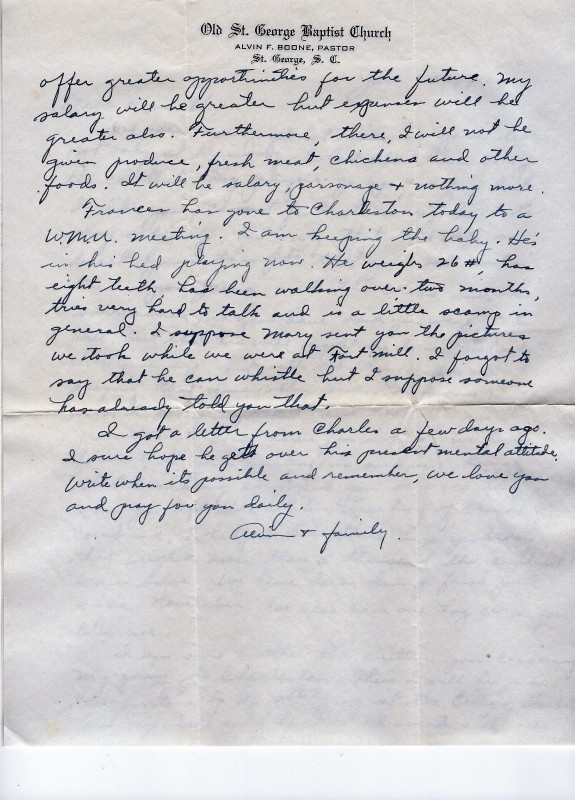 Old St. George Baptist Church
ALVIN F. BOONE, PASTOR
St. George, S. C.
offer greater opportunities for the future. My
salary will be greater but expenses will be
greater also. Furthermore, there, I will not be
given produce, fresh meat, chickens and other
foods. It will be salary, parsonage + nothing more.
Frances has gone to Charleston today to a
W.M.U. meeting. I am keeping the baby. He's
in his bed playing now. He weighs 26#, has
eight teeth has been walking over two months,
tries very hard to talk and is a little scamp in
general. I suppose Mary sent you the pictures
we took while we were at Fort Mill. I forgot to
say that he can whistle but I suppose someone
has already told you that.
I got a letter from Charles a few days ago.
I sure hope he gets over his present mental attitude.
Write when its possible and remember, we love you
and pray for you daily.
Alvin + family.